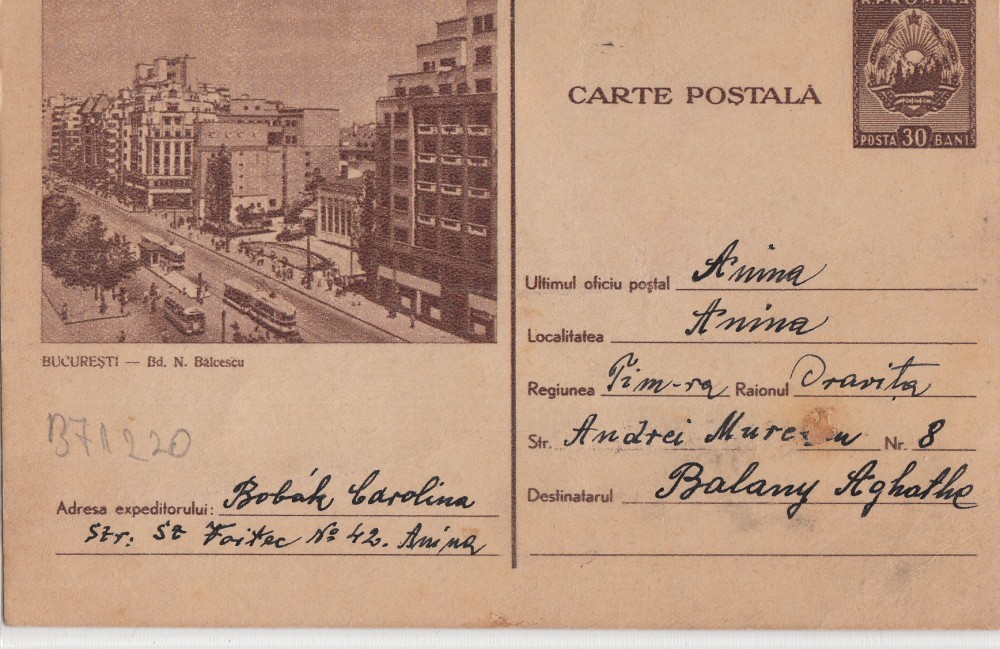 R.P. ROMINA
POSTA 30 BANI
CARTE POȘTALĂ
BUCUREȘTI — Bd. N. Bălcescu
B71220
Adresa expeditorului: Bobák Carolina
Str: St Voitec No 42. Anina
Ultimul oficiu poștal Anina
Localitatea Anina
Regiunea Tim-ra Raionul Oravița
Str. Andrei Nr. 8
Destinatarul Balany Aghathe